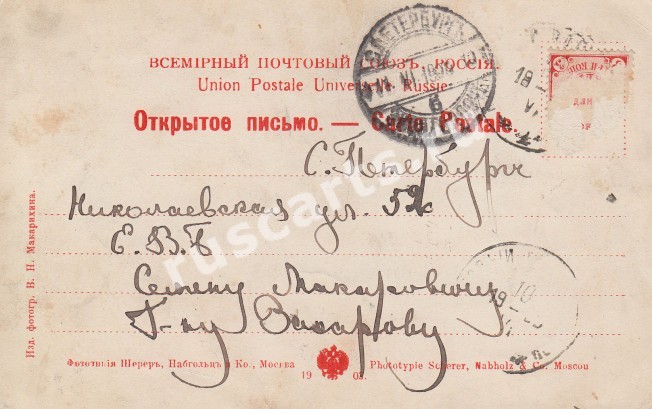 ВСЕМІРНЫЙ ПОЧТОВЫЙ СОЮЗЪ. РОССІЯ.
Union Postale Universelle. Russie.
Открытое письмо. — Carte Postale.
С. Петербургъ
Николаевская ул. 52
Е. В. Б
Семену Макаровичу
Г-ну Захарову
Изд. фотогр. В. Н. Макарихина.
Фототипія Шереръ, Набгольцъ и Ко., Москва
Phototypie Scherer, Nabholz & Co. Moscou
19 03.
ruscarts.ru